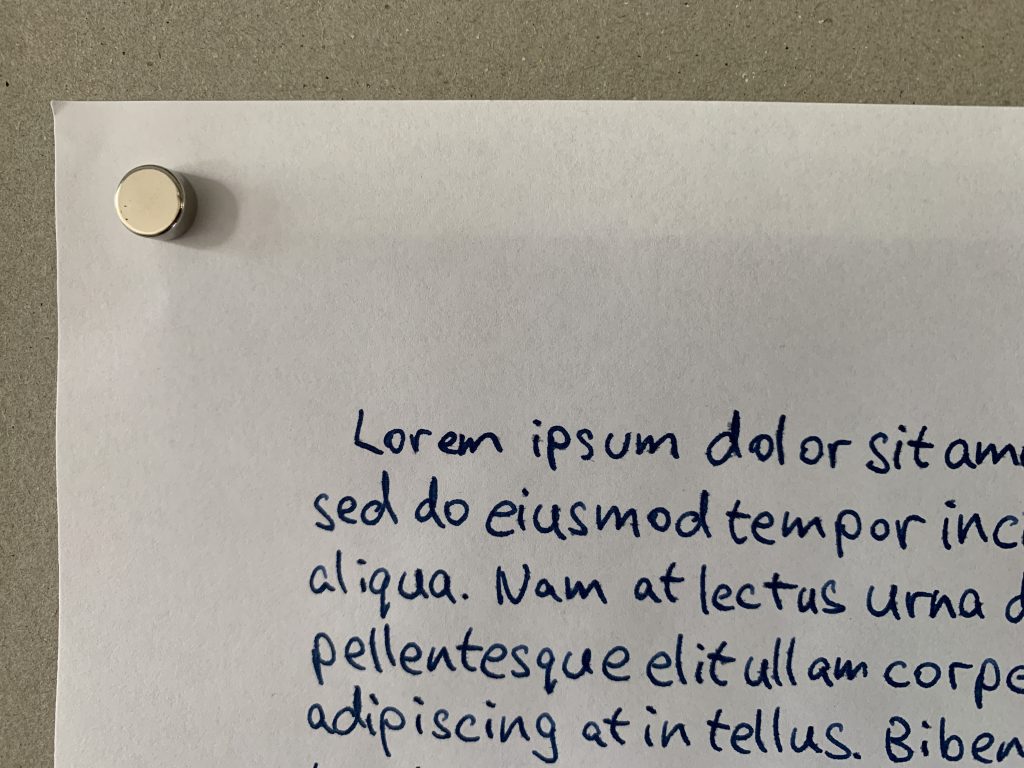 Lorem ipsum dolor sit am
sed do eiusmod tempor inci
aliqua. Nam at lectus urna d
pellentesque elit ullam corpe
adipiscing at in tellus. Biben